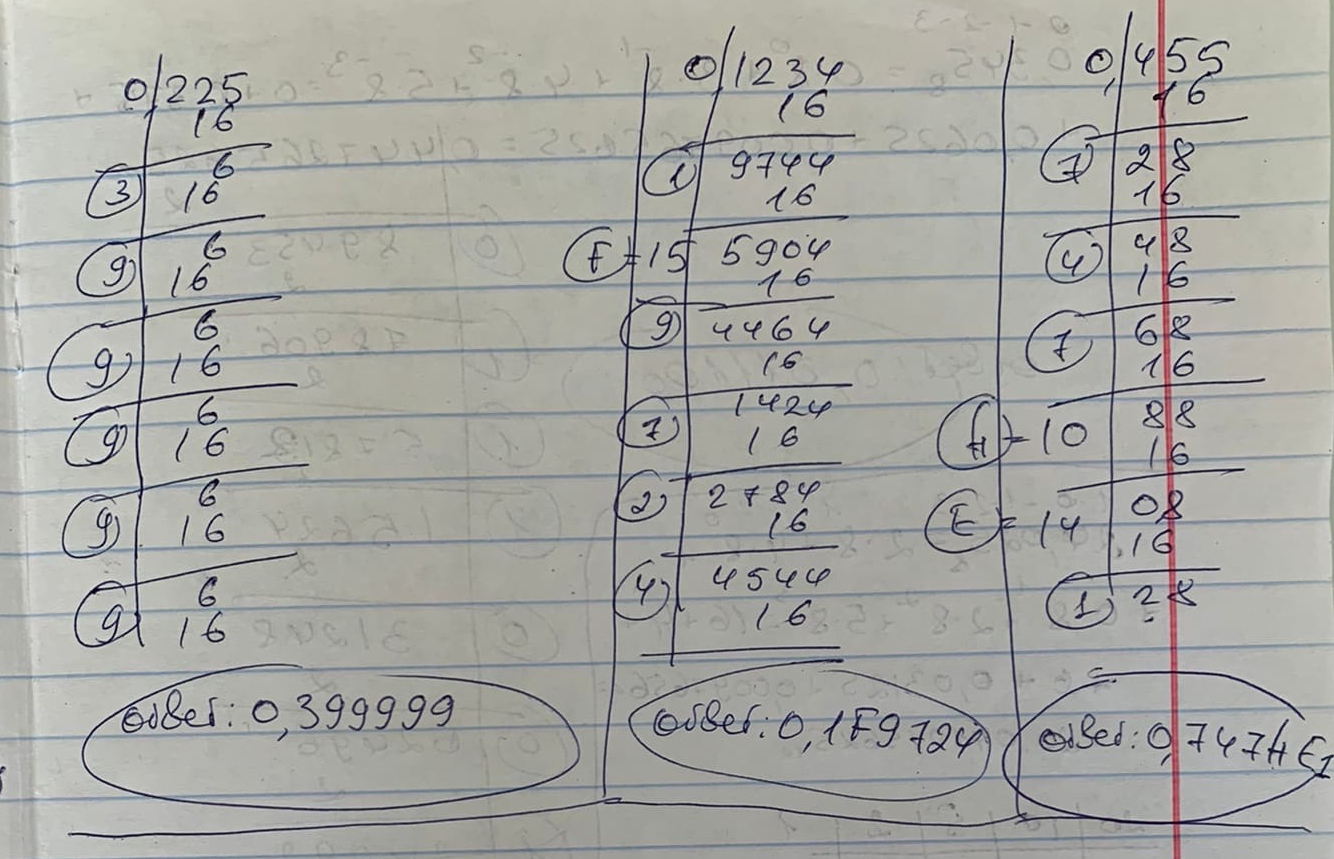 0,225
16
3 6
16
9 6
16
9 6
16
9 6
16
9 6
16
9 6
16
ответ: 0,399999
0,1234
16
1 9744
16
F=15 5904
16
9 4464
16
7 1424
16
2 2784
16
4 4544
16
ответ: 0,1F9724
0,455
16
7 28
16
4 48
16
7 68
16
A=10 88
16
E=14 08
16
1 28
ответ: 0,747AE1